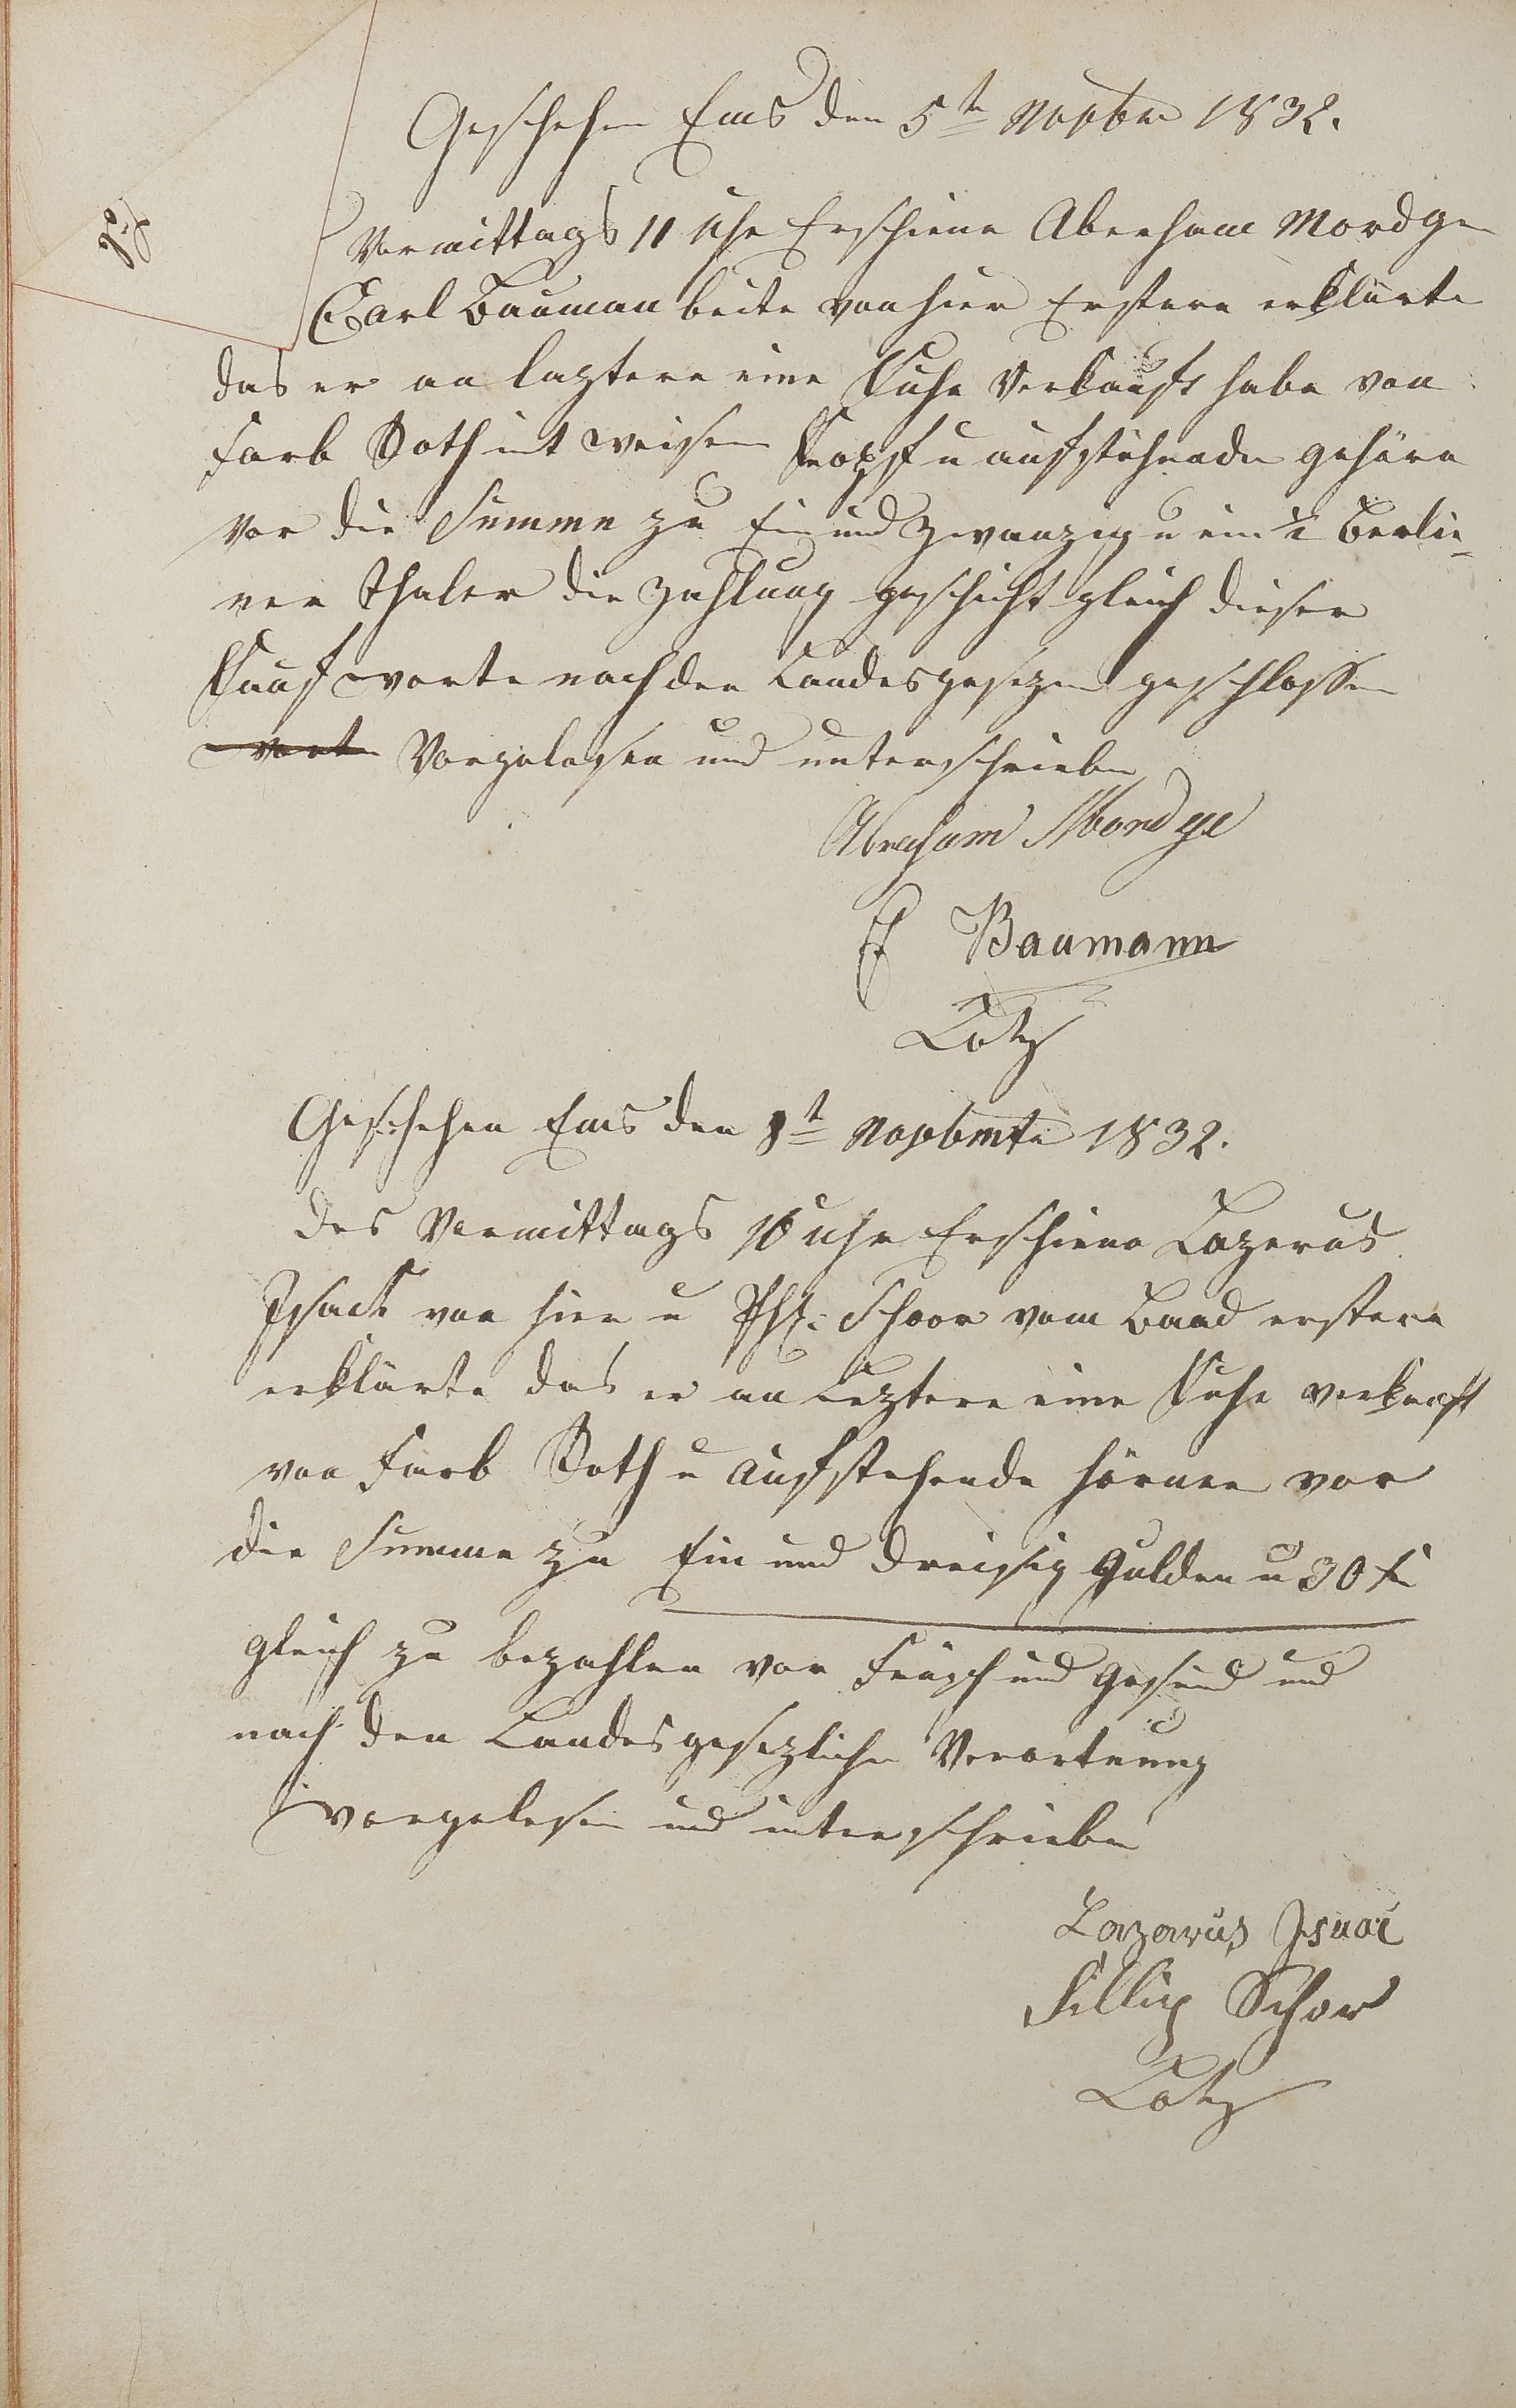 Geschehen Ems den 5t Novbr 1832.
Vormittags 11 Uhr Erschiene Abreham Mordge
Carl Bauman beite von hier Erstere erklärte
das er an leztere eine Kuhe Verkauft habe von
farb Roth mit weisem Kopf u aufstehende gehörn
vor die Summe zu Ein und zwanzig u ein ½ Berli-
ner Thaler die Zahlung geschicht gleich dieser
Kauf worte nach den Landesgesezen geschlossen
worte Vorgelesen und unterschrieben
Abraham Mordge
C Baumann
Lotz
Geschehen Ems den 8t Novbmte 1832.
des Vormittags 10 uhr Erschiene Lazerus
Isack von hier u Phl: Schoor vom Baad erstere
erklärte das er an Leztere eine Kuhe verkauft
von Farb Roth u aufstehende hörner vor
die Summe zu Ein und dreisig Gulden u 30 x
gleich zu bezahlen vor Früsch und Gesund und
nach den Landesgesezlichen Verortnung
vorgelesen und unterschrieben
Lazarus Isaac
Fillip Schor
Lotz